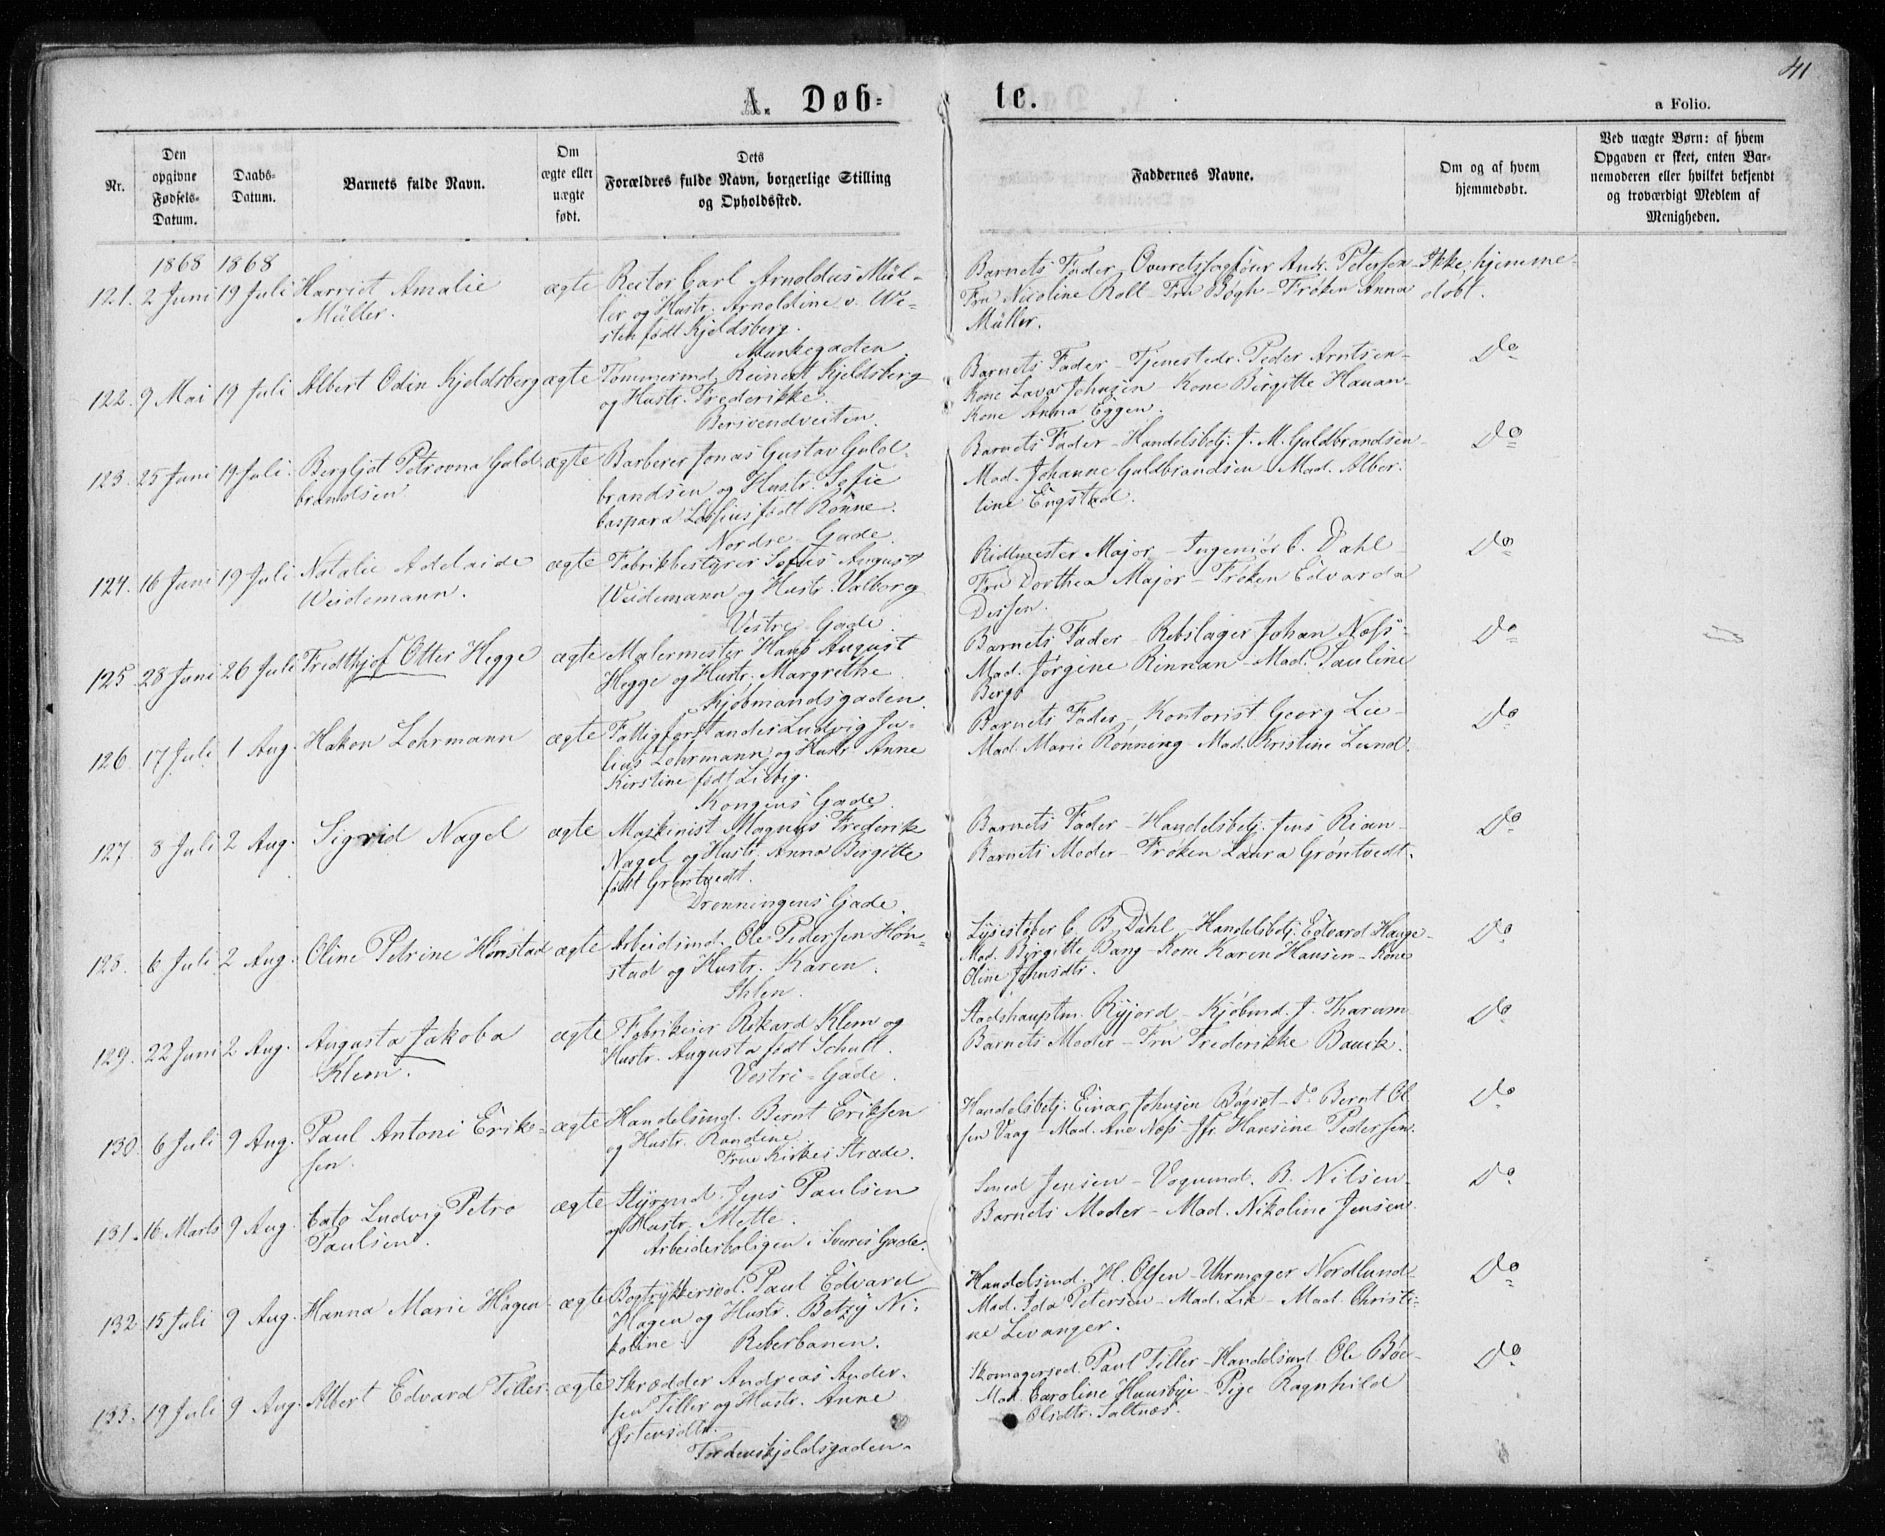 41
A. Døb-
te.
a Folio.
Nr.
Den opgivne Fødsels-Datum.
Daabs-Datum.
Barnets fulde Navn.
Om ægte eller uægte født.
Dets Forældres fulde Navn, borgerlige Stilling og Opholdssted.
Faddernes Navne.
Om og af hvem hjemmedøbt.
Ved uægte Børn: af hvem Opgaven er skeet, enten Barnemoderen eller hvilket bekjendt og troværdigt Medlem af Menigheden.
1868 1868
121. 2 Juni 19 Juli Harriet Amalie ægte Rector Carl Arnoldus Mül-
Müller. ler og Hustr. Arnoldine v. We-
sten født Kjeldsberg.
Munkegaden
Barnets Fader - Overretssagfører Andr. Petersen - Ikke hjemme-
Fru Nicoline Roll - Fru Bøgh - Frøken Anna døbt.
Müller.
122. 9 Mai 19 Juli Albert Odin Kjeldsberg ægte Tømmermd. Reinert Kjeldsberg
og Hustr. Frederikke.
Bersvendveiten.
Barnets Fader - Tjenestedr. Peder Arntsen - Do
Kone Lava Johnsen - Kone Birgitte Hauan -
Kone Anna Eggen.
123. 25 Juni 19 Juli. Bergljot Petrovna Guld- ægte Barberer Jonas Gustav Guld-
brandsen brandsen og Hustr. Sofie
Caspara Lossius født Rønne.
Nordre-Gade.
Barnets Fader - Handelsbetj. J. M. Guldbrandsen Do
Mad. Johanne Guldbrandsen - Mad. Alber-
tine Engstad.
124. 16 Juni 19 Juli Natalie Adelaide ægte Fabrikbestyrer Sofus August
Weidemann. Weidemann og Hustr. Valborg
Vestre-Gade.
Ridtmester Major - Ingeniør C. Dahl Do
Fru Dorthea Major - Frøken Edvarda
Dessen.
125 28 Juni 26 Juli Fredthjof Otter Hegge ægte Malermester Hans August
Hegge og Hustr. Margrethe
Kjøbmandsgaden.
Barnets Fader - Rebslager Johan Næss - Do
Mad. Jørgine Rinnan - Mad. Pauline
Berg.
126. 17 Juli 1 Aug. Hakon Lohrmann ægte Fattigforstander Ludvig Ju-
lius Lohrmann og Hustr. Anne
Kirstine født Liebig.
Kongens Gade
Barnets Fader - Kontorist Georg Lie - Do
Mad. Marie Rønning - Mad. Kristine Lund.
127. 8 Juli 2 Aug. Sigrid Nagel ægte Maskinist Magnus Frederik
Nagel og Hustr. Anna Bergitte
født Grøntvedt.
Dronningens Gade.
Barnets Fader - Handelsbetj. Jens Rian - Do
Barnets Moder - Frøken Laura Grøntvedt.
128. 6 Juli 2 Aug. Oline Petrine Hønstad ægte Arbeidsmd. Ole Pedersen Høn-
stad og Hustr. Karen.
Ihlen.
Lysestøber C. B. Dahl - Handelsbetj. Edvard Hauge - Do
Mad. Birgitte Bang - Kone Karen Hansen - Kone
Oline Johnsdtr.
129. 22 Juni 2 Aug. Augusta Jakoba ægte Fabrikeier Rikard Klem og
Klem. Hustr. Augusta født Schult.
Vestre-Gade.
Stadshauptm. Ryjord - Kjøbmd. J. Tharum Do
Barnets Moder - Fru Frederikke Bauck.
130. 6 Juli 9 Aug. Paul Antoni Erik- ægte Handelsmd. Bernt Eriksen
sen. og Hustr. Randine.
Frue Kirkes Stræde.
Handelsbetj. Einar Johnsen Bøgsæt - Do Bernt Ol- Do
sen Vaag - Mad. Ane Næss - Jfr. Hansine Pedersen.
131. 16 Marts 9 Aug. Cato Ludvig Petro ægte Styrmd. Jens Paulsen
Paulsen. og Hustr. Mette.
Arbeiderboligen i Sverres Gade.
Smed Jensen - Vognmd. B. Nilsen - Do
Barnets Moder - Mad. Nikoline Jensen.
132 15 Juli 9 Aug. Hanna Marie Hagen ægte Bogtrykkersvd. Paul Edvard
Hagen og Hustr. Betzy Ni-
koline Reberbanen.
Handelsmd. H. Olsen - Uhrmager Nordlund - Do
Mad. Ida Petersen - Mad. Lie - Mad. Christi-
ne Levanger.
133. 19 Juli 9 Aug. Albert Edvard Tiller. ægte Skrædder Andreas Ander-
sen Tiller og Hustr. Anne
Østensdtr.
Tordenskjoldsgaden.
Skomagersvd. Paul Tiller - Handelsmd. Ole Bøe - Do
Mad. Caroline Huusbye - Pige Ragnhild
Olsdtr. Saltnæs.